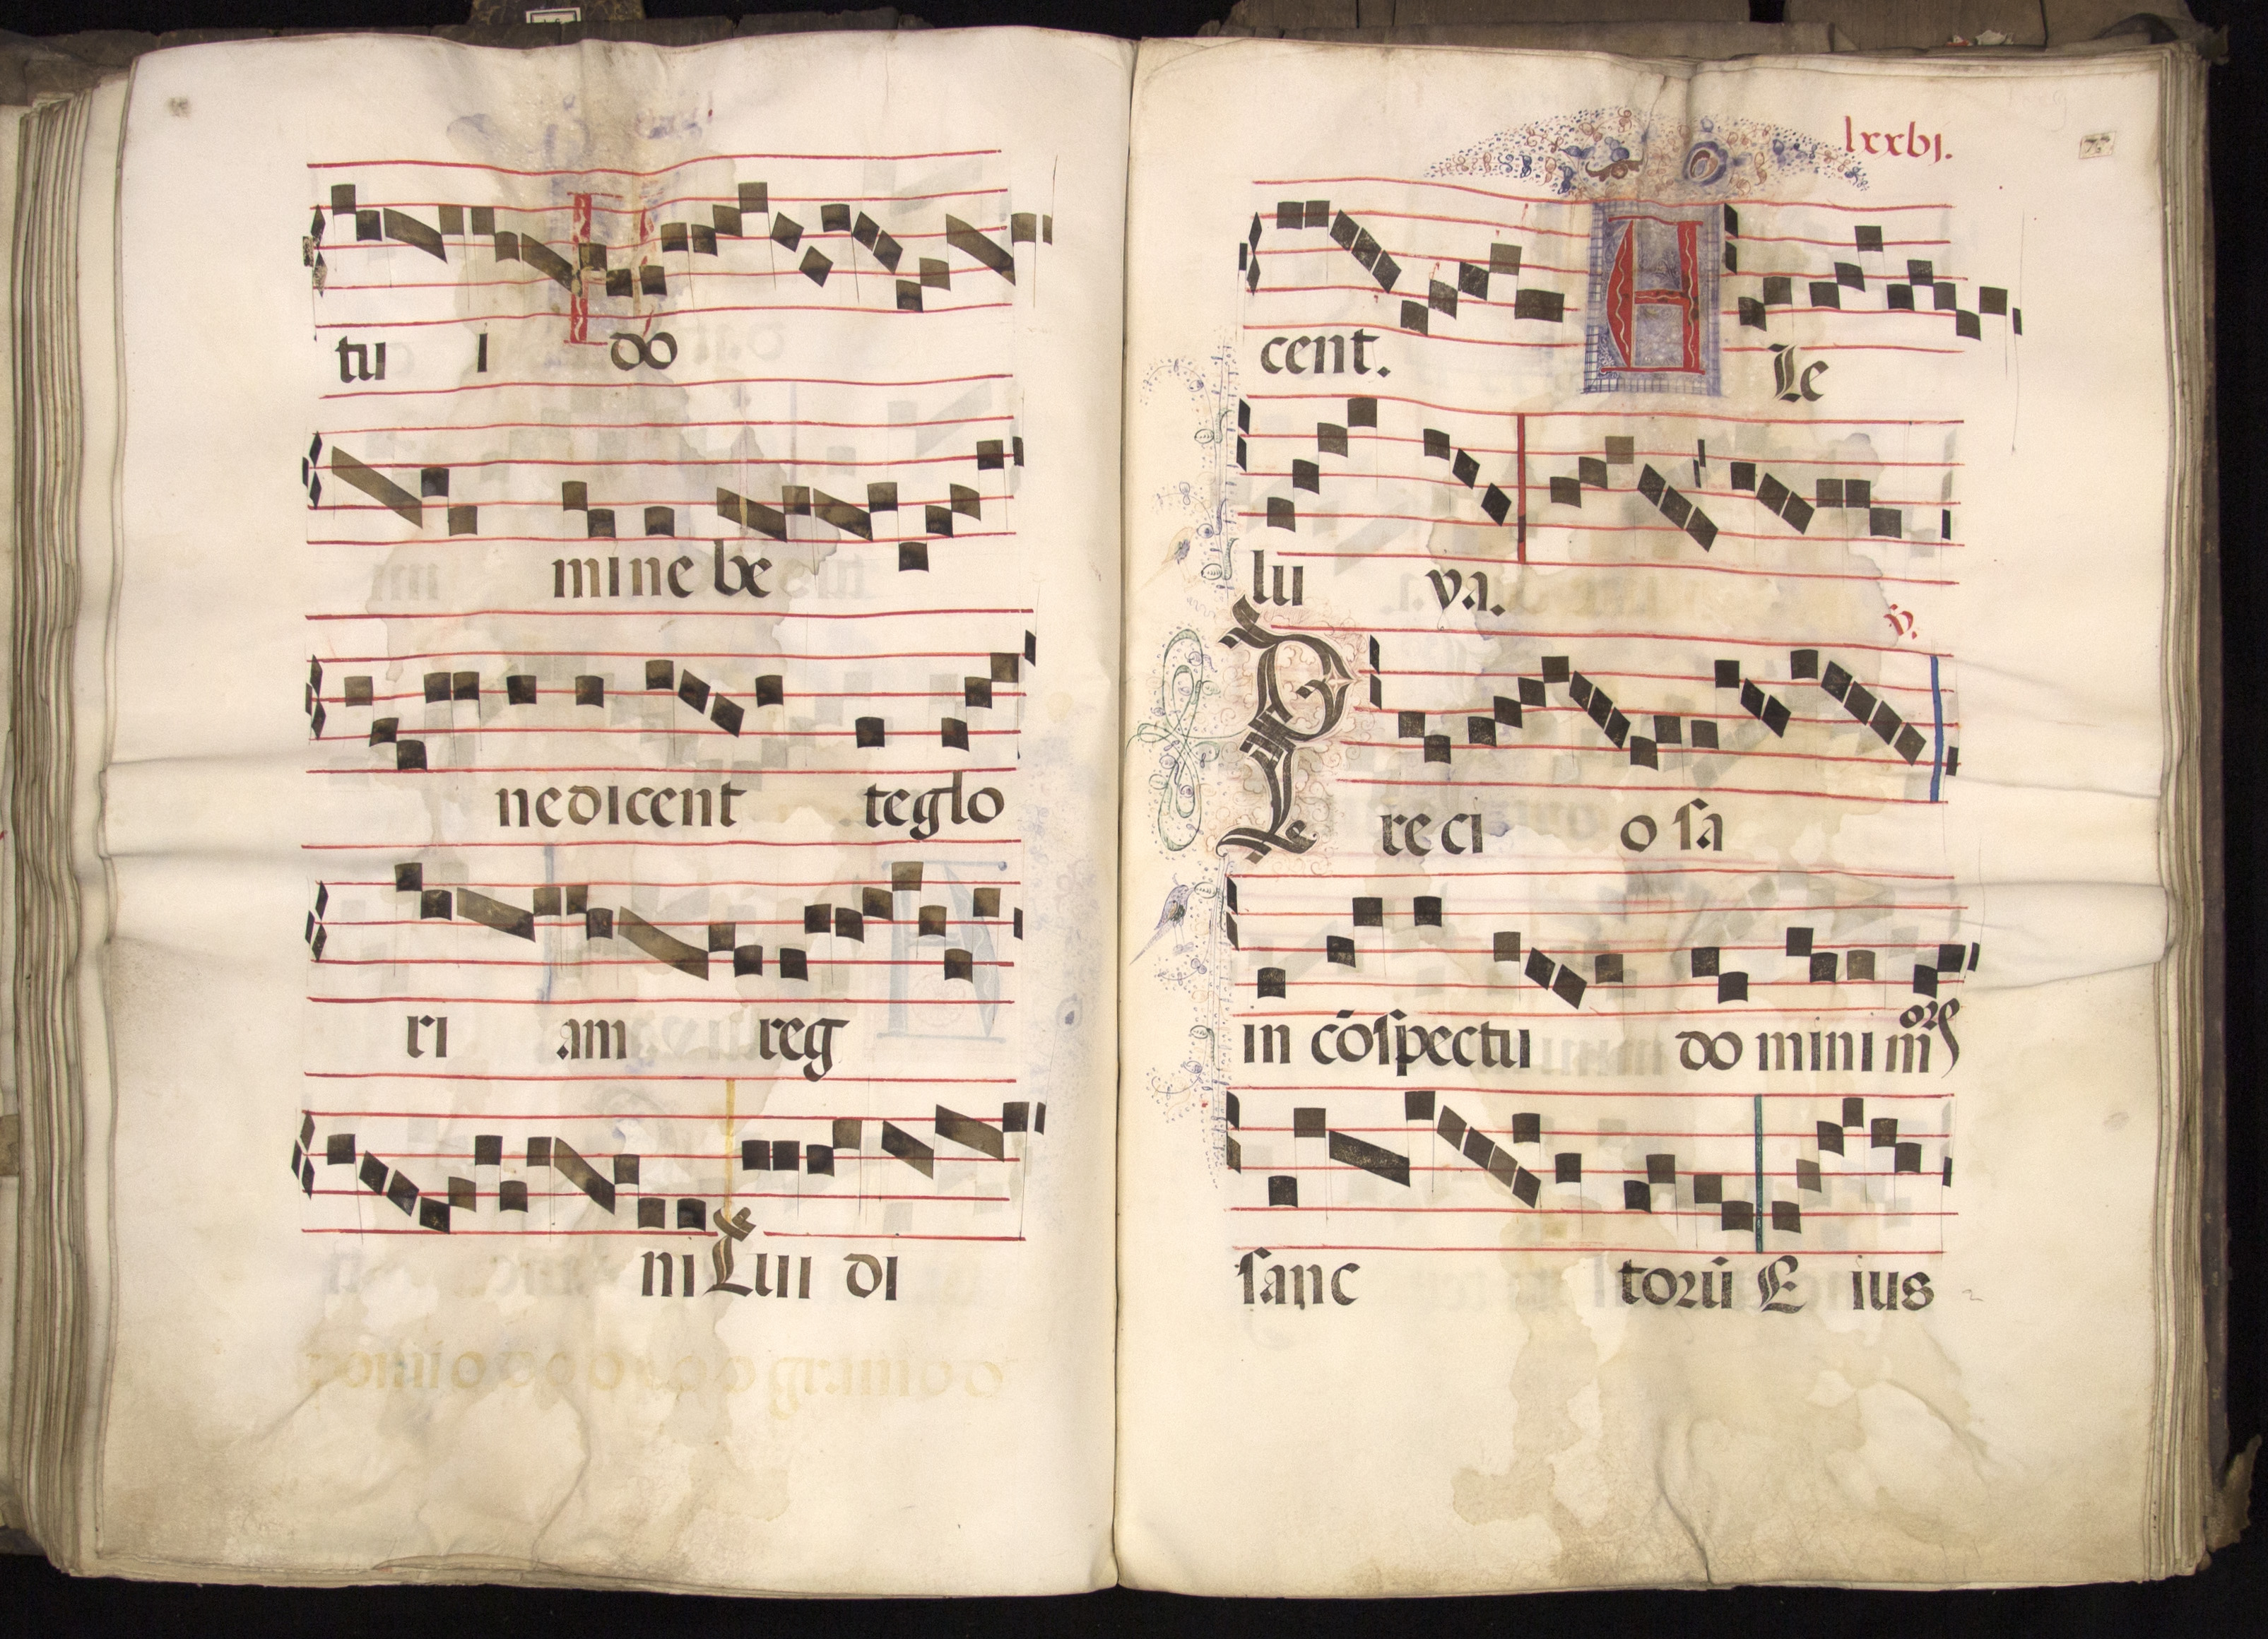 tu i do
mine be
nedicent te glo
ri am reg
ni tui di
lxxbj.
cent. A Le
lu ya.
℣.
P re ci o sa
in cōspectu do mini mors
sanc torū E ius